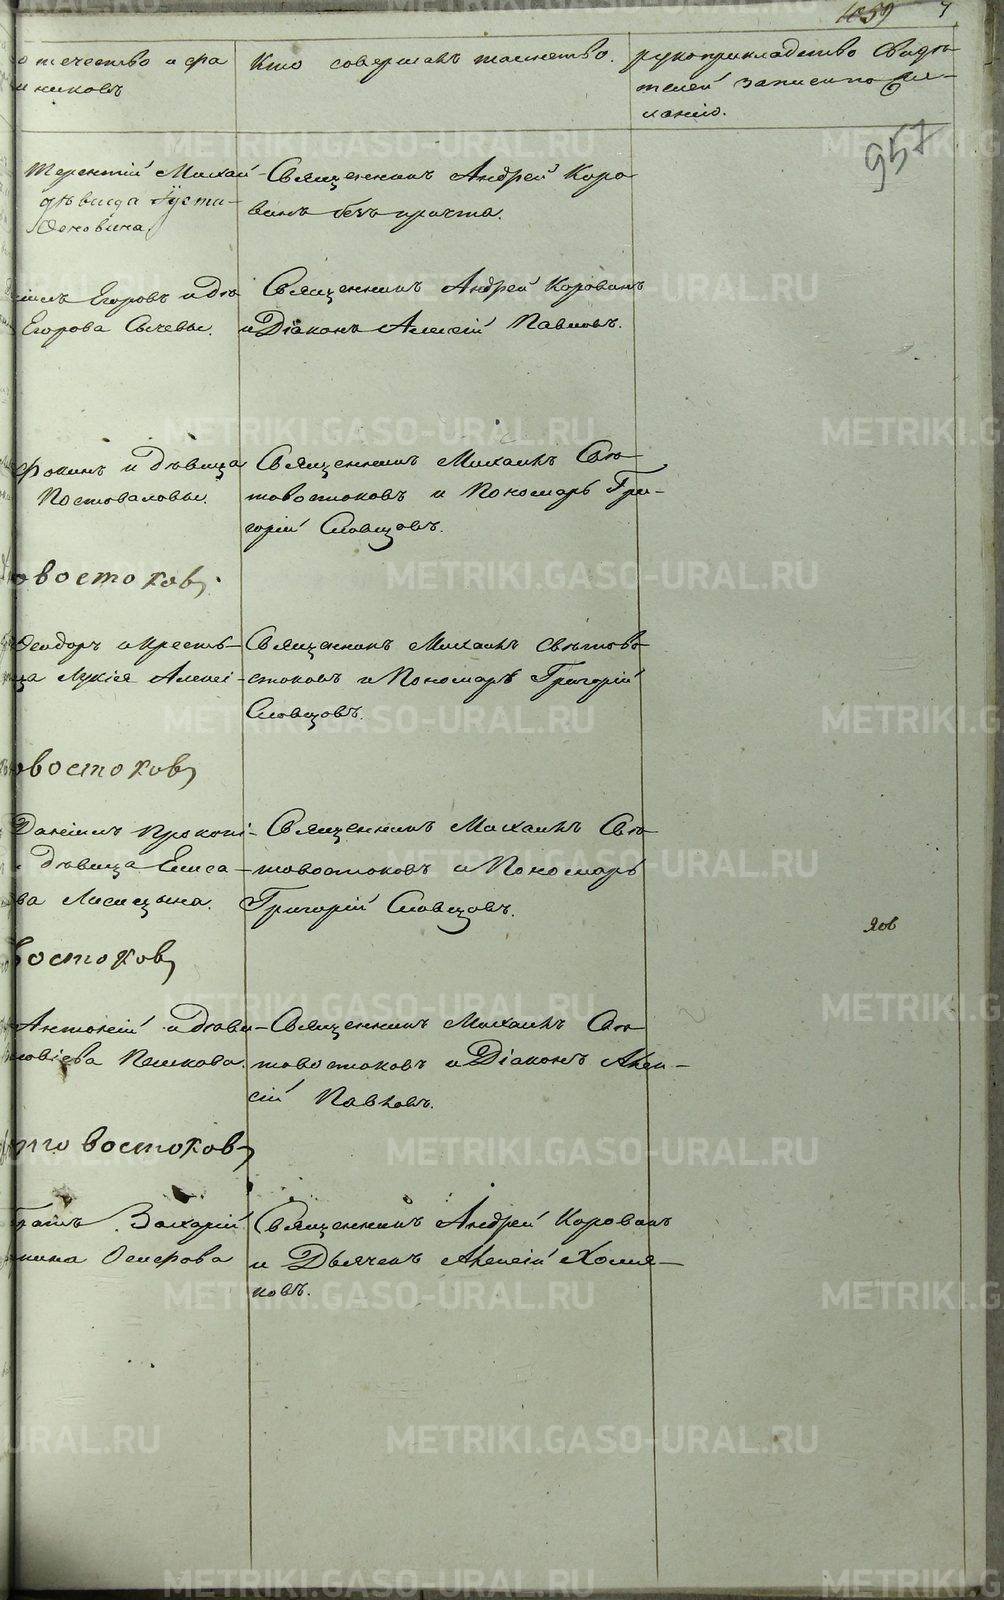 1059 7
957
отечество и фа
никовъ
Кто совершалъ таинство.
рукоприкладство Свидѣ-
телей записи по же-
ланію.
Терентій Михай-
дѣвица
Священникъ Андрей Коро-
винъ безъ причта.
Егоровъ и дѣ-
Егорова Сычевы.
Священникъ Андрей Коровинъ
и Діаконъ Алексій Павловъ.
Фокинъ и Дѣвица
Постоваловы.
Священникъ Михаилъ Свѣ-
товостоковъ и Пономарь Гри-
горій Словцовъ.
овостоковъ
Ѳеодоръ и кресть-
Лукія Алексі-
Священникъ Михаилъ Свѣтово-
стоковъ и Пономарь Григорій
Словцовъ.
овостоковъ
Даніилъ Прокопі-
дѣвица Елиса-
ва Лисицына.
Священникъ Михаилъ Свѣ-
товостоковъ и Пономарь
Григорій Словцовъ.
востоковъ
Антоній и дѣви-
Пешкова.
Священникъ Михаилъ Свѣ-
товостоковъ и Діаконъ Алек-
сій Павловъ.
товостоковъ
братъ Захарій
Осифова
Священникъ Андрей Коровинъ
и Дьячекъ Алексій Хомя-
ковъ.
METRIKI.GASO-URAL.RU